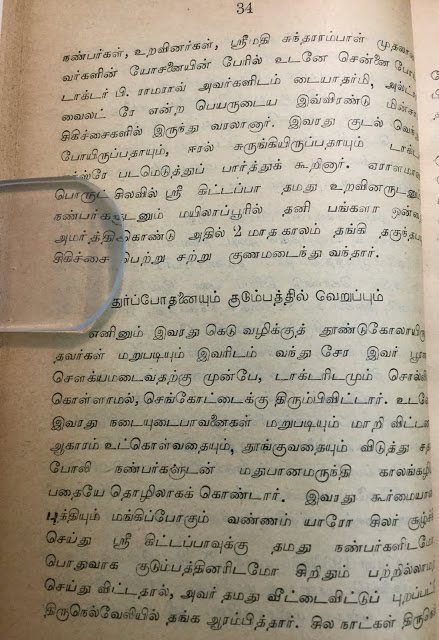 34
நண்பர்கள், உறவினர்கள், ஸ்ரீமதி சுந்தராம்பாள் முதலா
வர்களின் யோசனையின் பேரில் உடனே சென்னை போ
டாக்டர் பி. ராமராவ் அவர்களிடம் டையாதர்மி, அல்ட்
வைலட் ரே என்ற பெயருடைய இவ்விரண்டு மின்சா
சிகிச்சைகளில் இருந்து வரலானார். இவரது குடல் வெ
போயிருப்பதாயும், ஈரல் சுருங்கியிருப்பதாயும் டாக்ட
படமெடுத்துப் பார்த்துக் கூறினார். ஏராளமா
பொருட் சிலவில் ஸ்ரீ கிட்டப்பா தமது உறவினருடனு
நண்பர்களுடனும் மயிலாப்பூரில் தனி பங்களா ஒன்
அமர்த்திக்கொண்டு அதில் 2 மாத காலம் தங்கி தகுந்த
சிகிச்சை பெற்று சற்று குணமடைந்து வந்தார்.
துர்ப்போதனையும் குடும்பத்தில் வெறுப்பும்
எனினும் இவரது கெடு வழிக்குத் தூண்டுகோலாயிரு
தவர்கள் மறுபடியும் இவரிடம் வந்து சேர இவர் பூரண
சௌக்யமடைவதற்கு முன்பே, டாக்டரிடமும் சொல்லி
கொள்ளாமல், செங்கோட்டைக்கு திரும்பிவிட்டார். உடனே
இவரது நடையுடைபாவனைகள் மறுபடியும் மாறி விட்டன
ஆகாரம் உட்கொள்வதையும், தூங்குவதையும் விடுத்து சத
போலி நண்பர்களுடன் மதுபானமருந்தி காலங்கழி
பதையே தொழிலாகக் கொண்டார். இவரது கூர்மையான
புக்தியும் மங்கிப்போகும் வண்ணம் யாரோ சிலர் சூழ்ச்சி
செய்து ஸ்ரீ கிட்டப்பாவுக்கு தமது நண்பர்களிடமோ
பொதுவாக குடும்பத்தினரிடமோ சிறிதும் பற்றில்லாமற்
செய்து விட்டதால், அவர் தமது வீட்டைவிட்டுப் புறப்பட்
திருநெல்வேலியில் தங்க ஆரம்பித்தார். சில நாட்கள் திருநெ